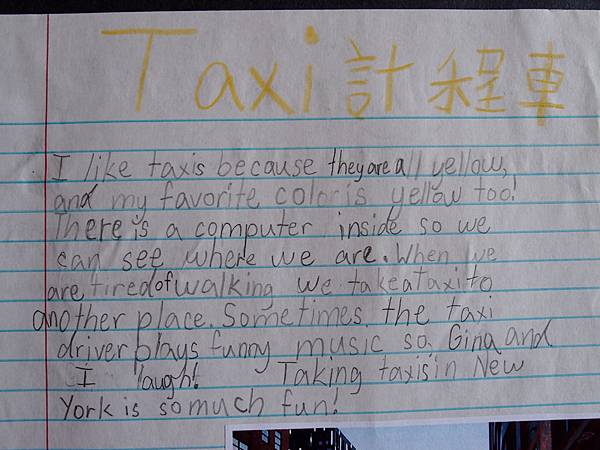 Taxi 計程車
I like taxis because they are all yellow,
and my favorite color is yellow too!
There is a computer inside so we
can see where we are. When we
are tired of walking we take a taxi to
another place. Sometimes the taxi
driver plays funny music so Gina and
I laugh! Taking taxis in New
York is so much fun!